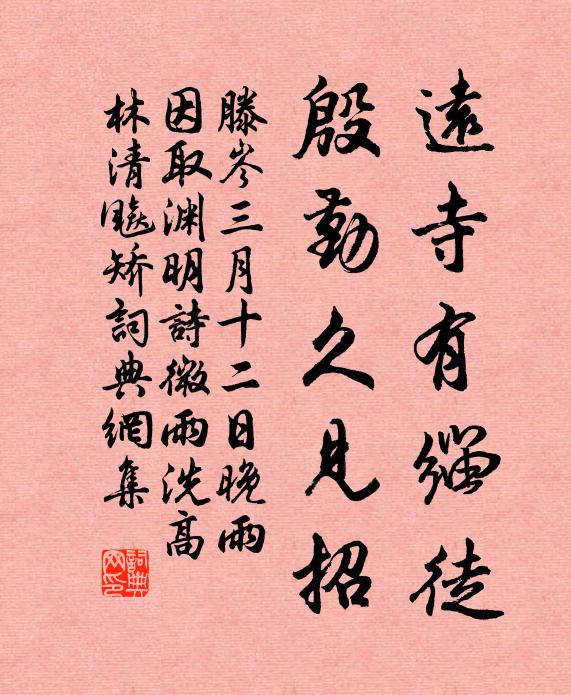 遠寺有緇徒
殷勤久見招
滕岑三月十二日晚雨
因取淵明詩微雨洗高
林清飈矯詞典網集